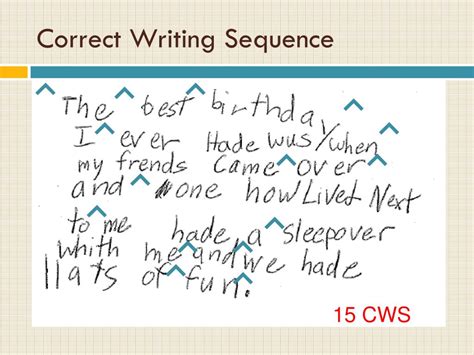 Correct Writing Sequence
The best birthday
I ever Hade wus/when
my frends came over
and one how Livet Next
to me hade a sleepover
whith me and we hade
llats of fun.
15 CWS